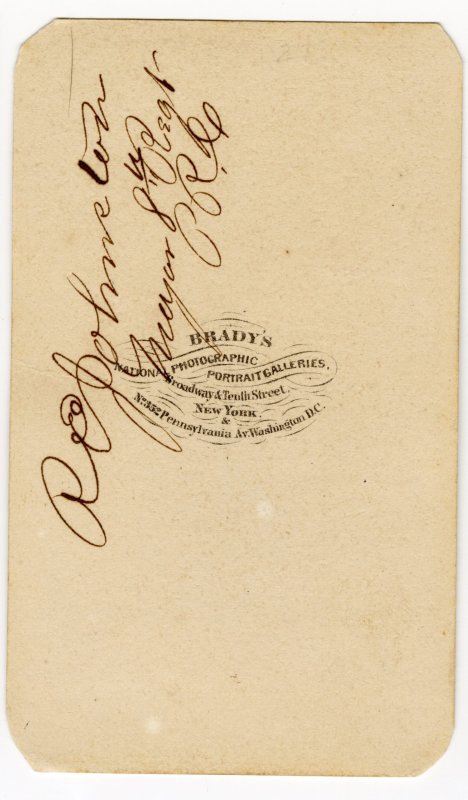 R E Johnston
Major 8th Regt
P.R.C
BRADY'S
NATIONAL PHOTOGRAPHIC PORTRAIT GALLERIES,
Broadway & Tenth Street.
NEW YORK
&
No. 352 Pennsylvania Av. Washington D.C.